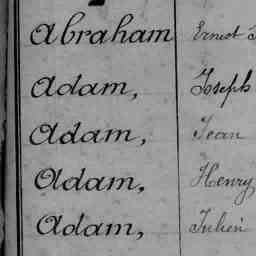 Abraham Ernest
Adam, Joseph
Adam, Jean
Adam, Henry
Adam, Julien